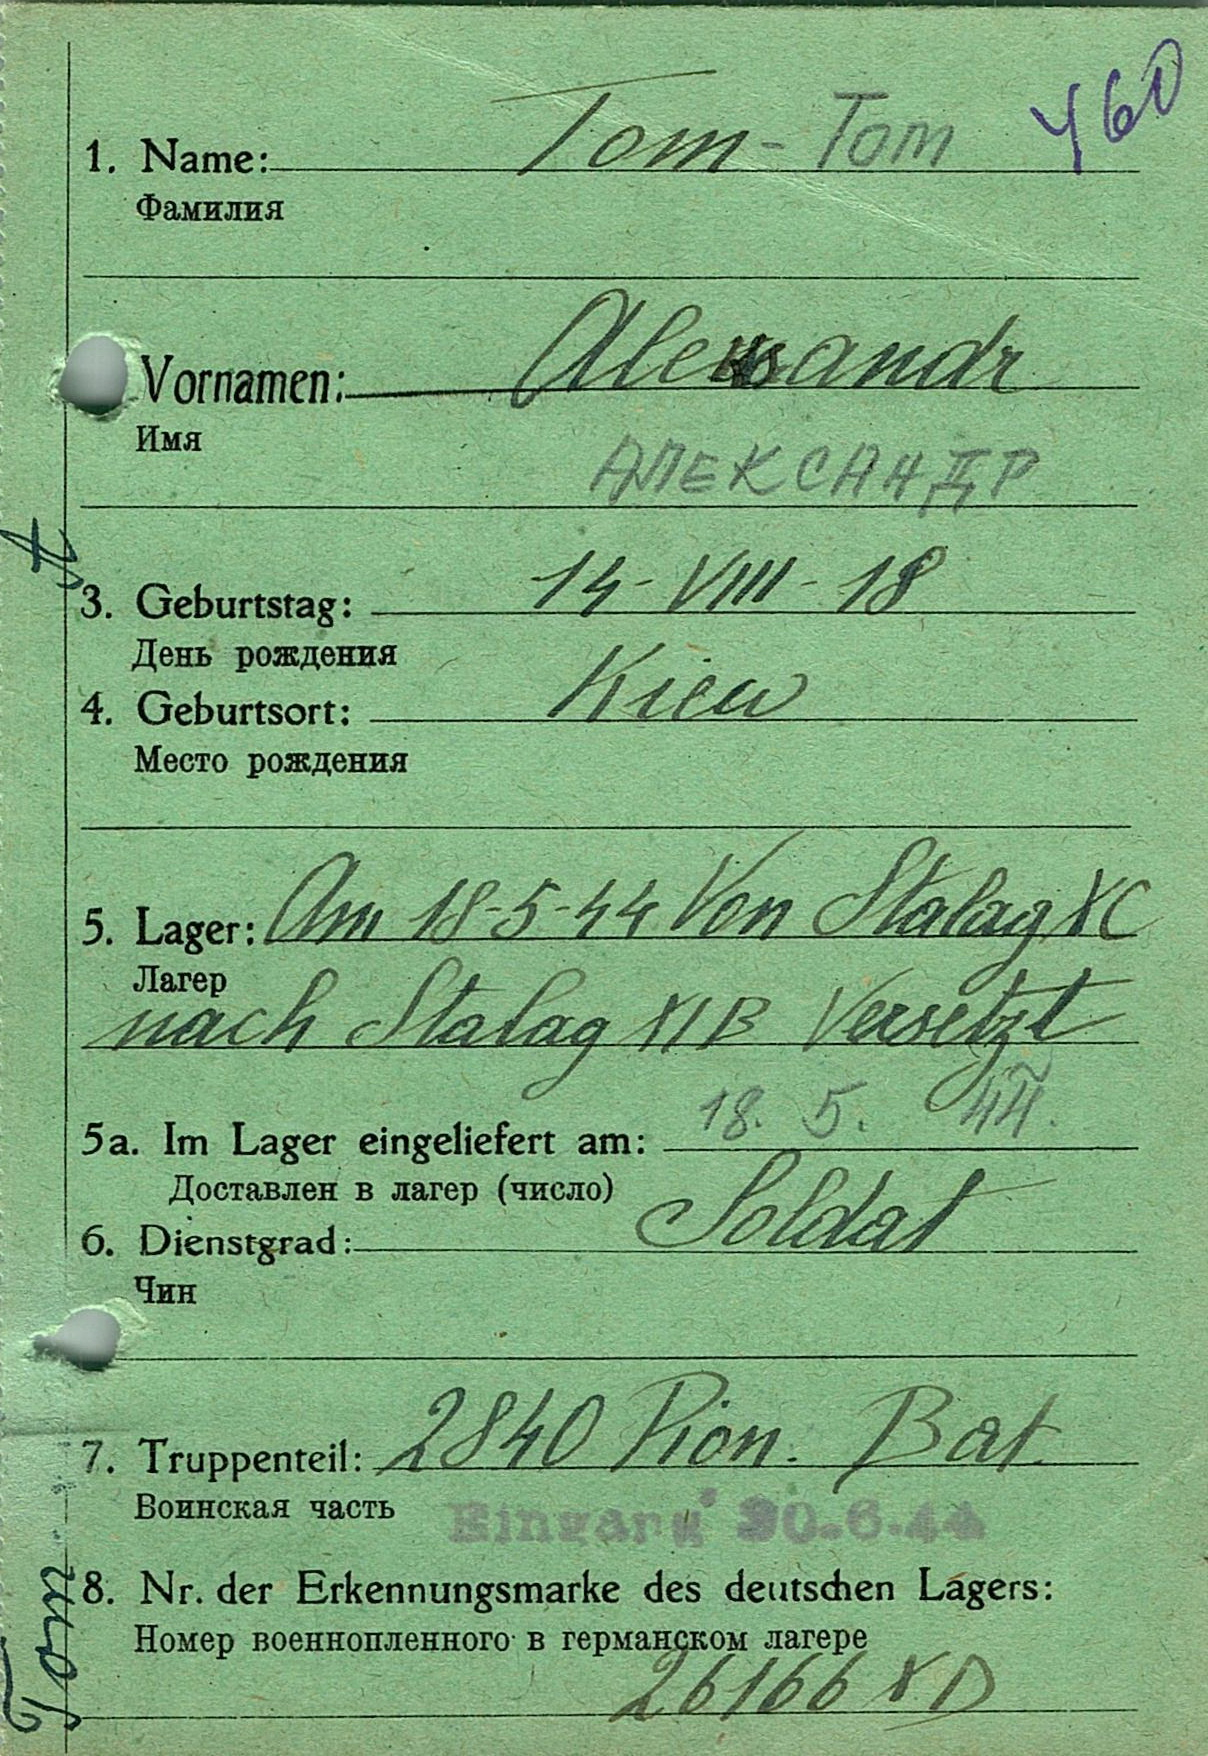 460
1. Name: Tom - Tom
Фамилия
Vornamen: Alexandr
Имя
АЛЕКСАНДР
3. Geburtstag: 14-VIII-18
День рождения
4. Geburtsort: Kiew
Место рождения
5. Lager: Am 18-5-44 Von Stalag XC
Лагер
nach Stalag XIB Versetzt
5a. Im Lager eingeliefert am: 18. 5. 44.
Доставлен в лагер (число)
6. Dienstgrad: Soldat
Чин
7. Truppenteil: 2840 Pion. Bat.
Воинская часть
Eingang 30.6.44
8. Nr. der Erkennungsmarke des deutschen Lagers:
Номер военнопленного в германском лагере
26166 XD
Tom